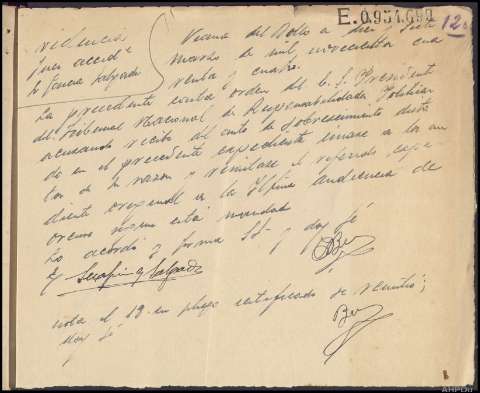 E.0951699
12
Viana del Bollo a diez y siete
Juez accidl
Sr. García Salgado
Marzo de mil novecientos cua
renta y cuatro.
La precedente carta orden del E. S. Presidente
del Tribunal Nacional de Responsabilidades Políticas
acusando recibo del auto de sobreseimiento dicta
do en el precedente expediente únase a los au
tos de su razón y remítase el referido expe
diente original a la Iltma Audiencia de
Orense según está mandado
Lo acordó y firma SSª y doy fé
Serafin G Salgado
nota el 19 en pliego certificado se remitió;
doy fé